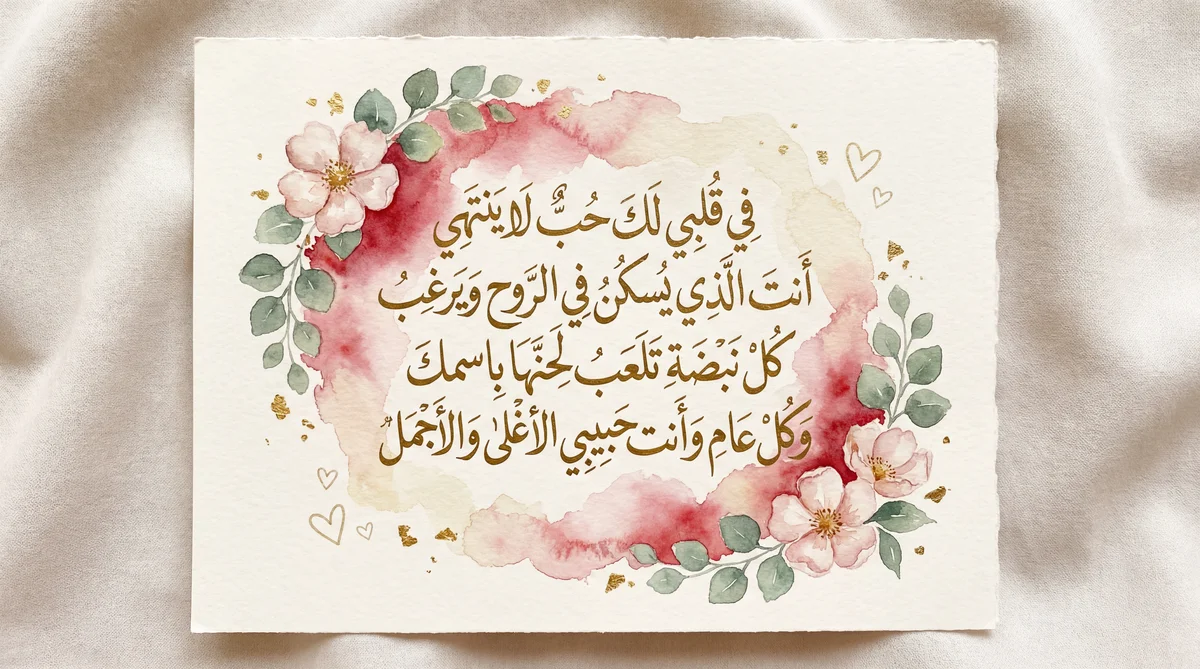 فِي قُلِبِي لَكَ حُبٌّ لَا يَنتَهِي
أَنتَ الَّذِي يُسكُنُ فِي الرَّوح وَيَرغِبُ
كُلْ نَبْضَةِ تَلَعَبُ لَحِنَّهَا بِاسمكَ
وَكُلْ عَامِ وَأَنت حَبِيبِي الأَغْلىٰ وَالأَجْمَلُ